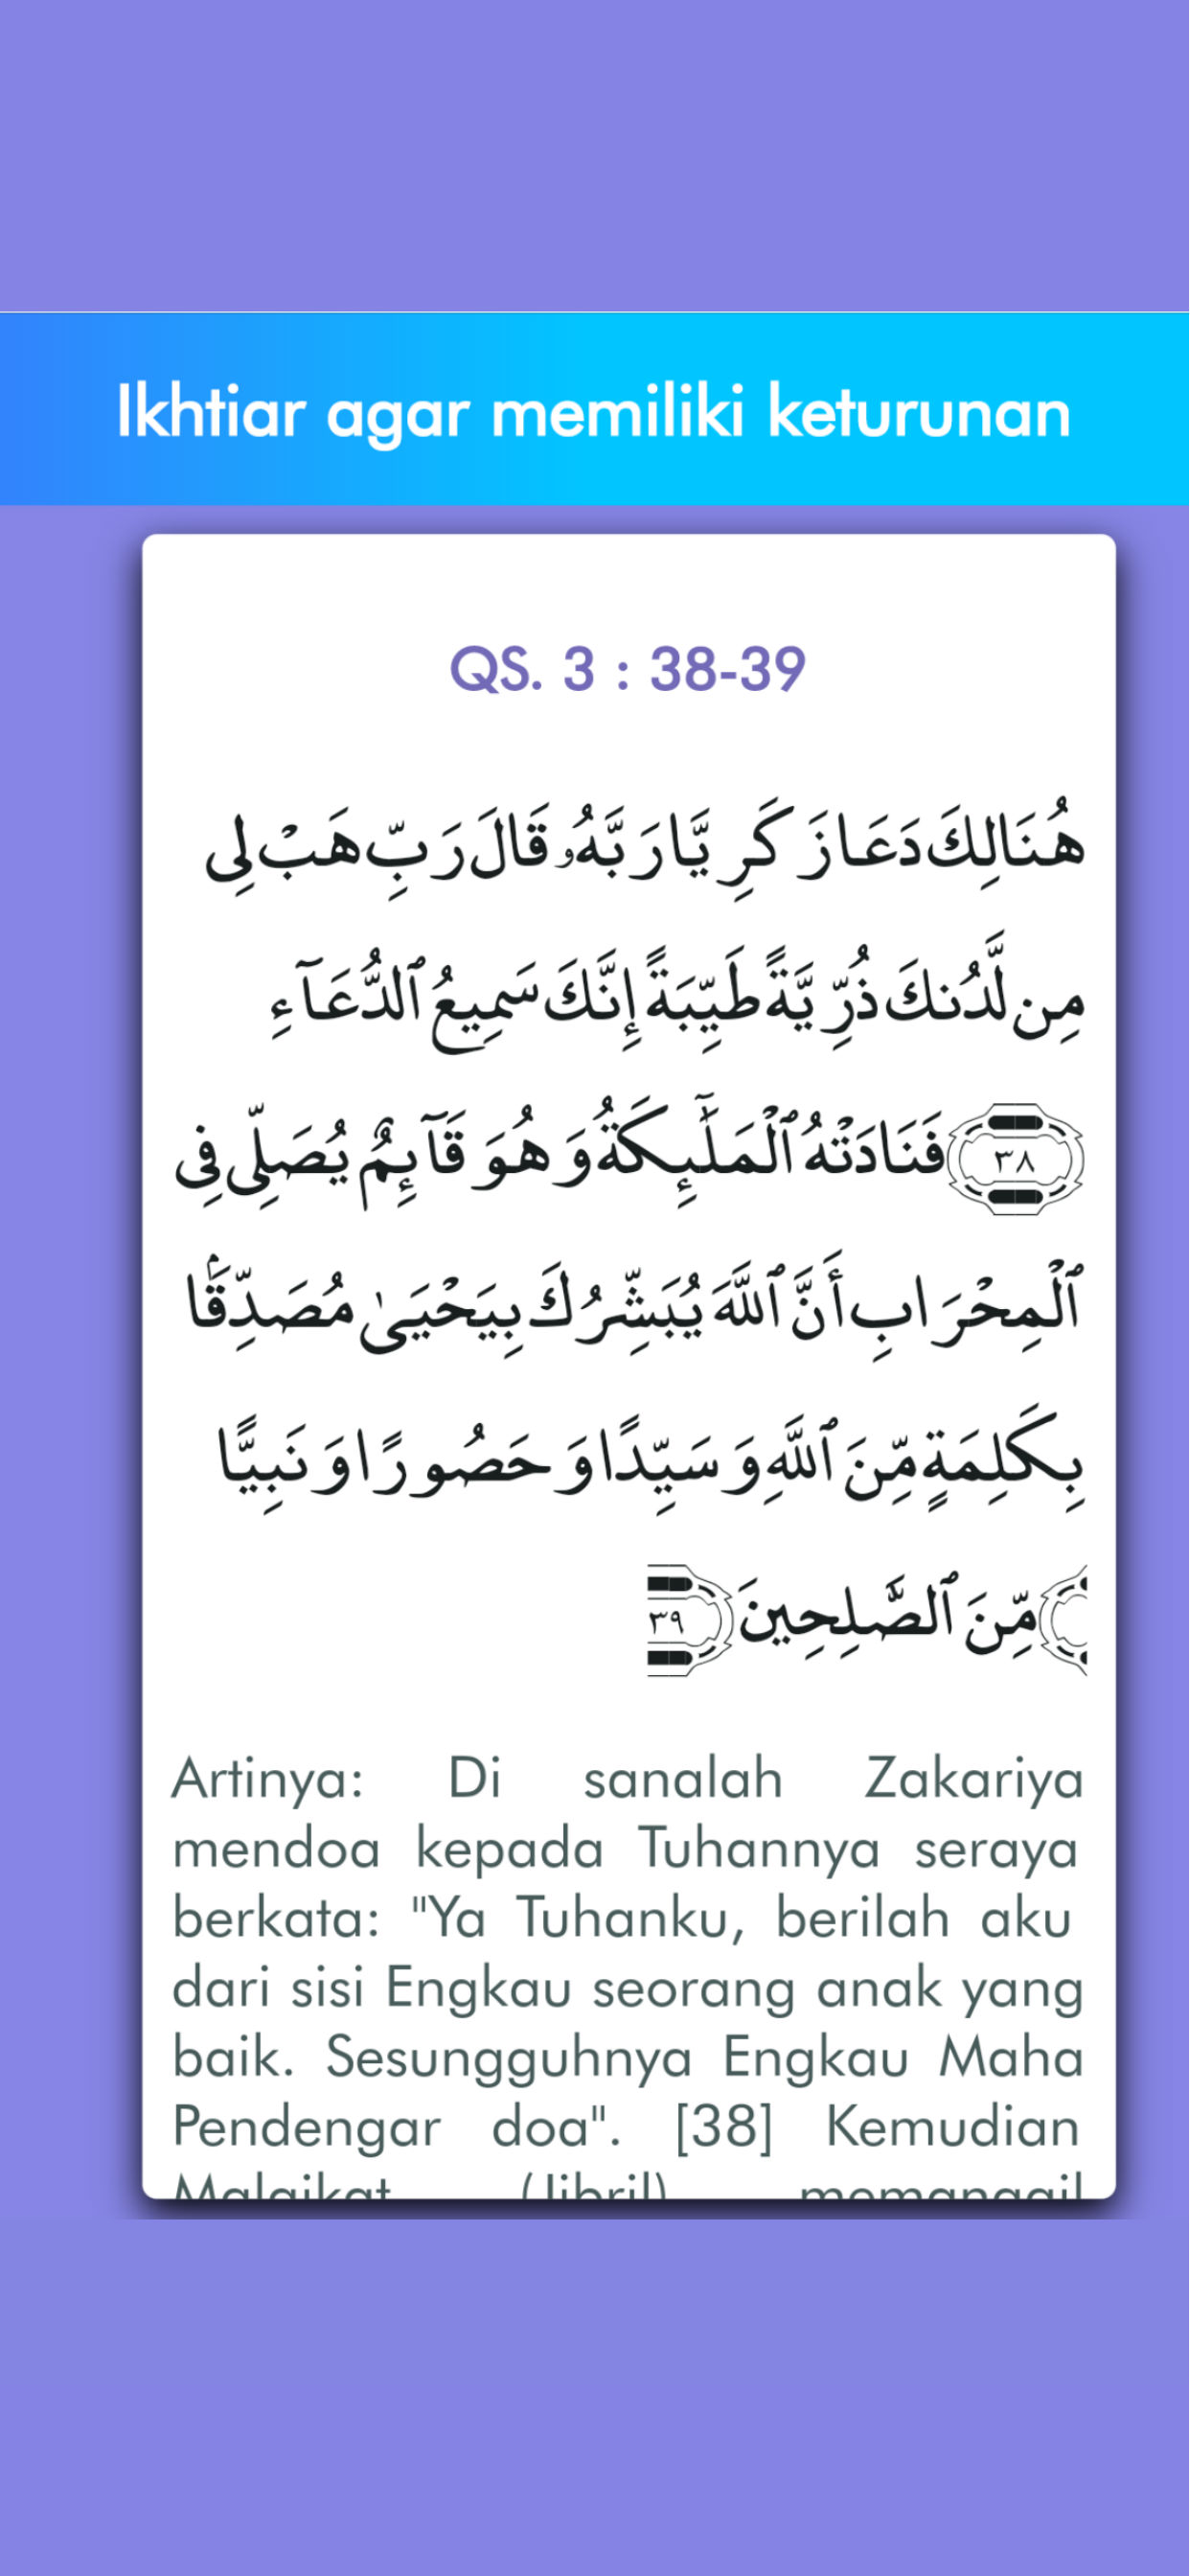 Ikhtiar agar memiliki keturunan
QS. 3 : 38-39
هُنَالِكَ دَعَا زَكَرِيَّا رَبَّهُۥ قَالَ رَبِّ هَبْ لِى
مِن لَّدُنكَ ذُرِّيَّةً طَيِّبَةً إِنَّكَ سَمِيعُ ٱلدُّعَآءِ
٣٨ فَنَادَتْهُ ٱلْمَلَٰٓئِكَةُ وَهُوَ قَآئِمٌ يُصَلِّى فِى
ٱلْمِحْرَابِ أَنَّ ٱللَّهَ يُبَشِّرُكَ بِيَحْيَىٰ مُصَدِّقًۢا
بِكَلِمَةٍ مِّنَ ٱللَّهِ وَسَيِّدًا وَحَصُورًا وَنَبِيًّا
مِّنَ ٱلصَّٰلِحِينَ ٣٩
Artinya: Di sanalah Zakariya
mendoa kepada Tuhannya seraya
berkata: "Ya Tuhanku, berilah aku
dari sisi Engkau seorang anak yang
baik. Sesungguhnya Engkau Maha
Pendengar doa". [38] Kemudian
Malaikat (Jibril) memanggil